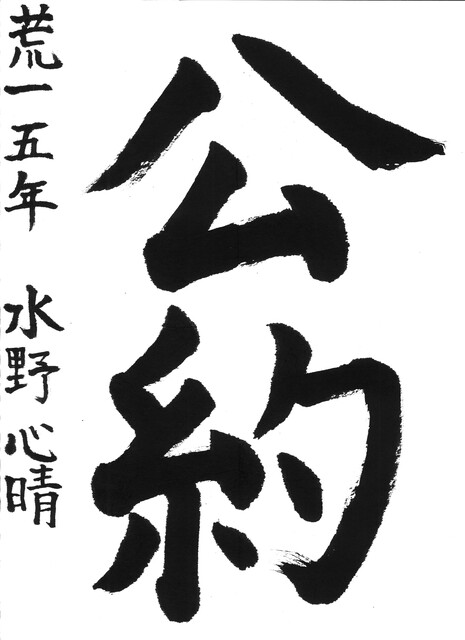 公約
荒一五年 水野心晴